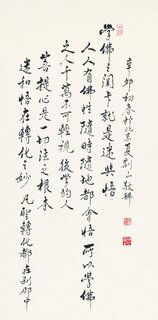 辛卯初春於北京夏荆山敬
學佛之關卡就是迷與悟
人人有佛性隨時隨地都會悟所以學佛
之人千萬不可輕視後學的人
菩提心是一切法之根本
迷和悟在轉化之妙 凡聖轉化都在刹那中